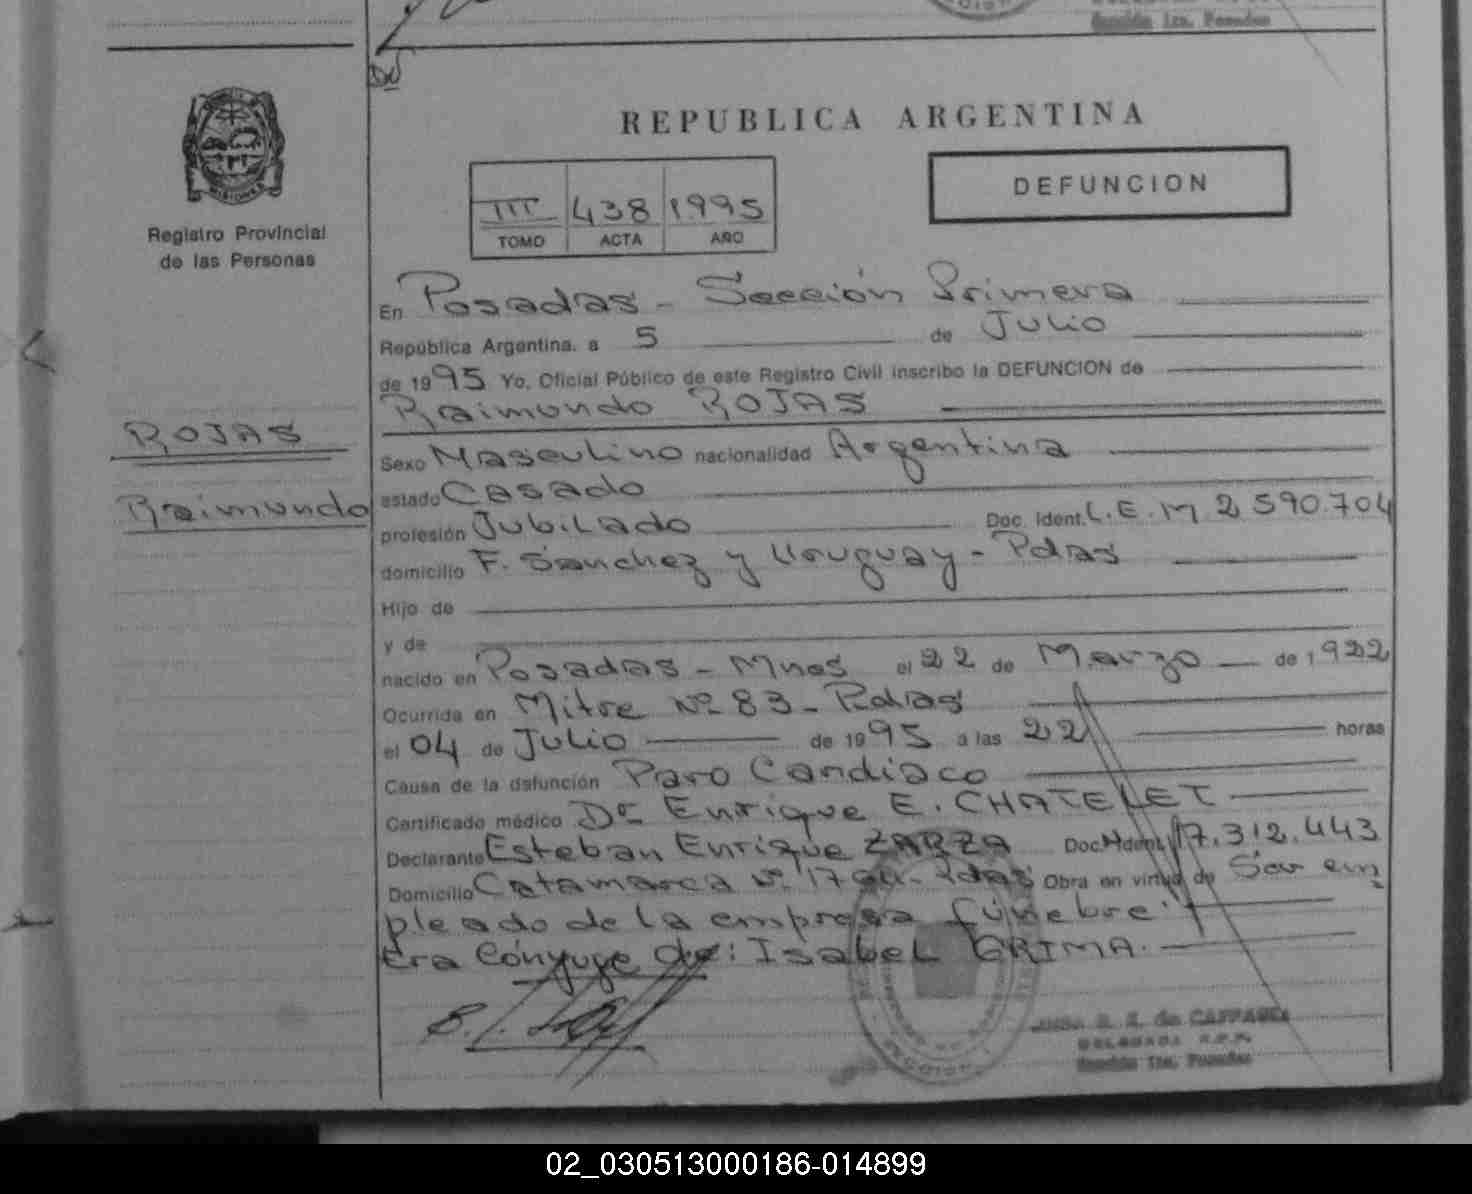 Sección 1ra. Posadas
REPUBLICA ARGENTINA
MISIONES
Registro Provincial
de las Personas
III 438 1995
TOMO ACTA AÑO
DEFUNCION
En Posadas - Sección Primera
República Argentina, a 5 de Julio
de 1995 Yo, Oficial Público de este Registro Civil inscribo la DEFUNCION de
Raimundo ROJAS
ROJAS
Raimundo
Sexo Masculino nacionalidad Argentina
estado Casado
profesión Jubilado Doc. Ident. L.E.M 2 590.704
domicilio F. Sanchez y Uruguay - Pdas
Hijo de
y de
nacido en Posadas - Mnes el 22 de Marzo de 1922
Ocurrida en Mitre Nº 83 - Pdas
el 04 de Julio de 1995 a las 22 horas
Causa de la defunción Paro Cardiaco
Certificado médico Dr Enrique E. CHATELET
Declarante Esteban Enrique ZARZA Doc. Ident. 17.312.443
Domicilio Catamarca Nº Pdas Obra en virtud de Ser em
pleado de la empresa fúnebre.
Era Cónyuge de: Isabel GRIMA.
Sección 1ra. Posadas
02_030513000186-014899